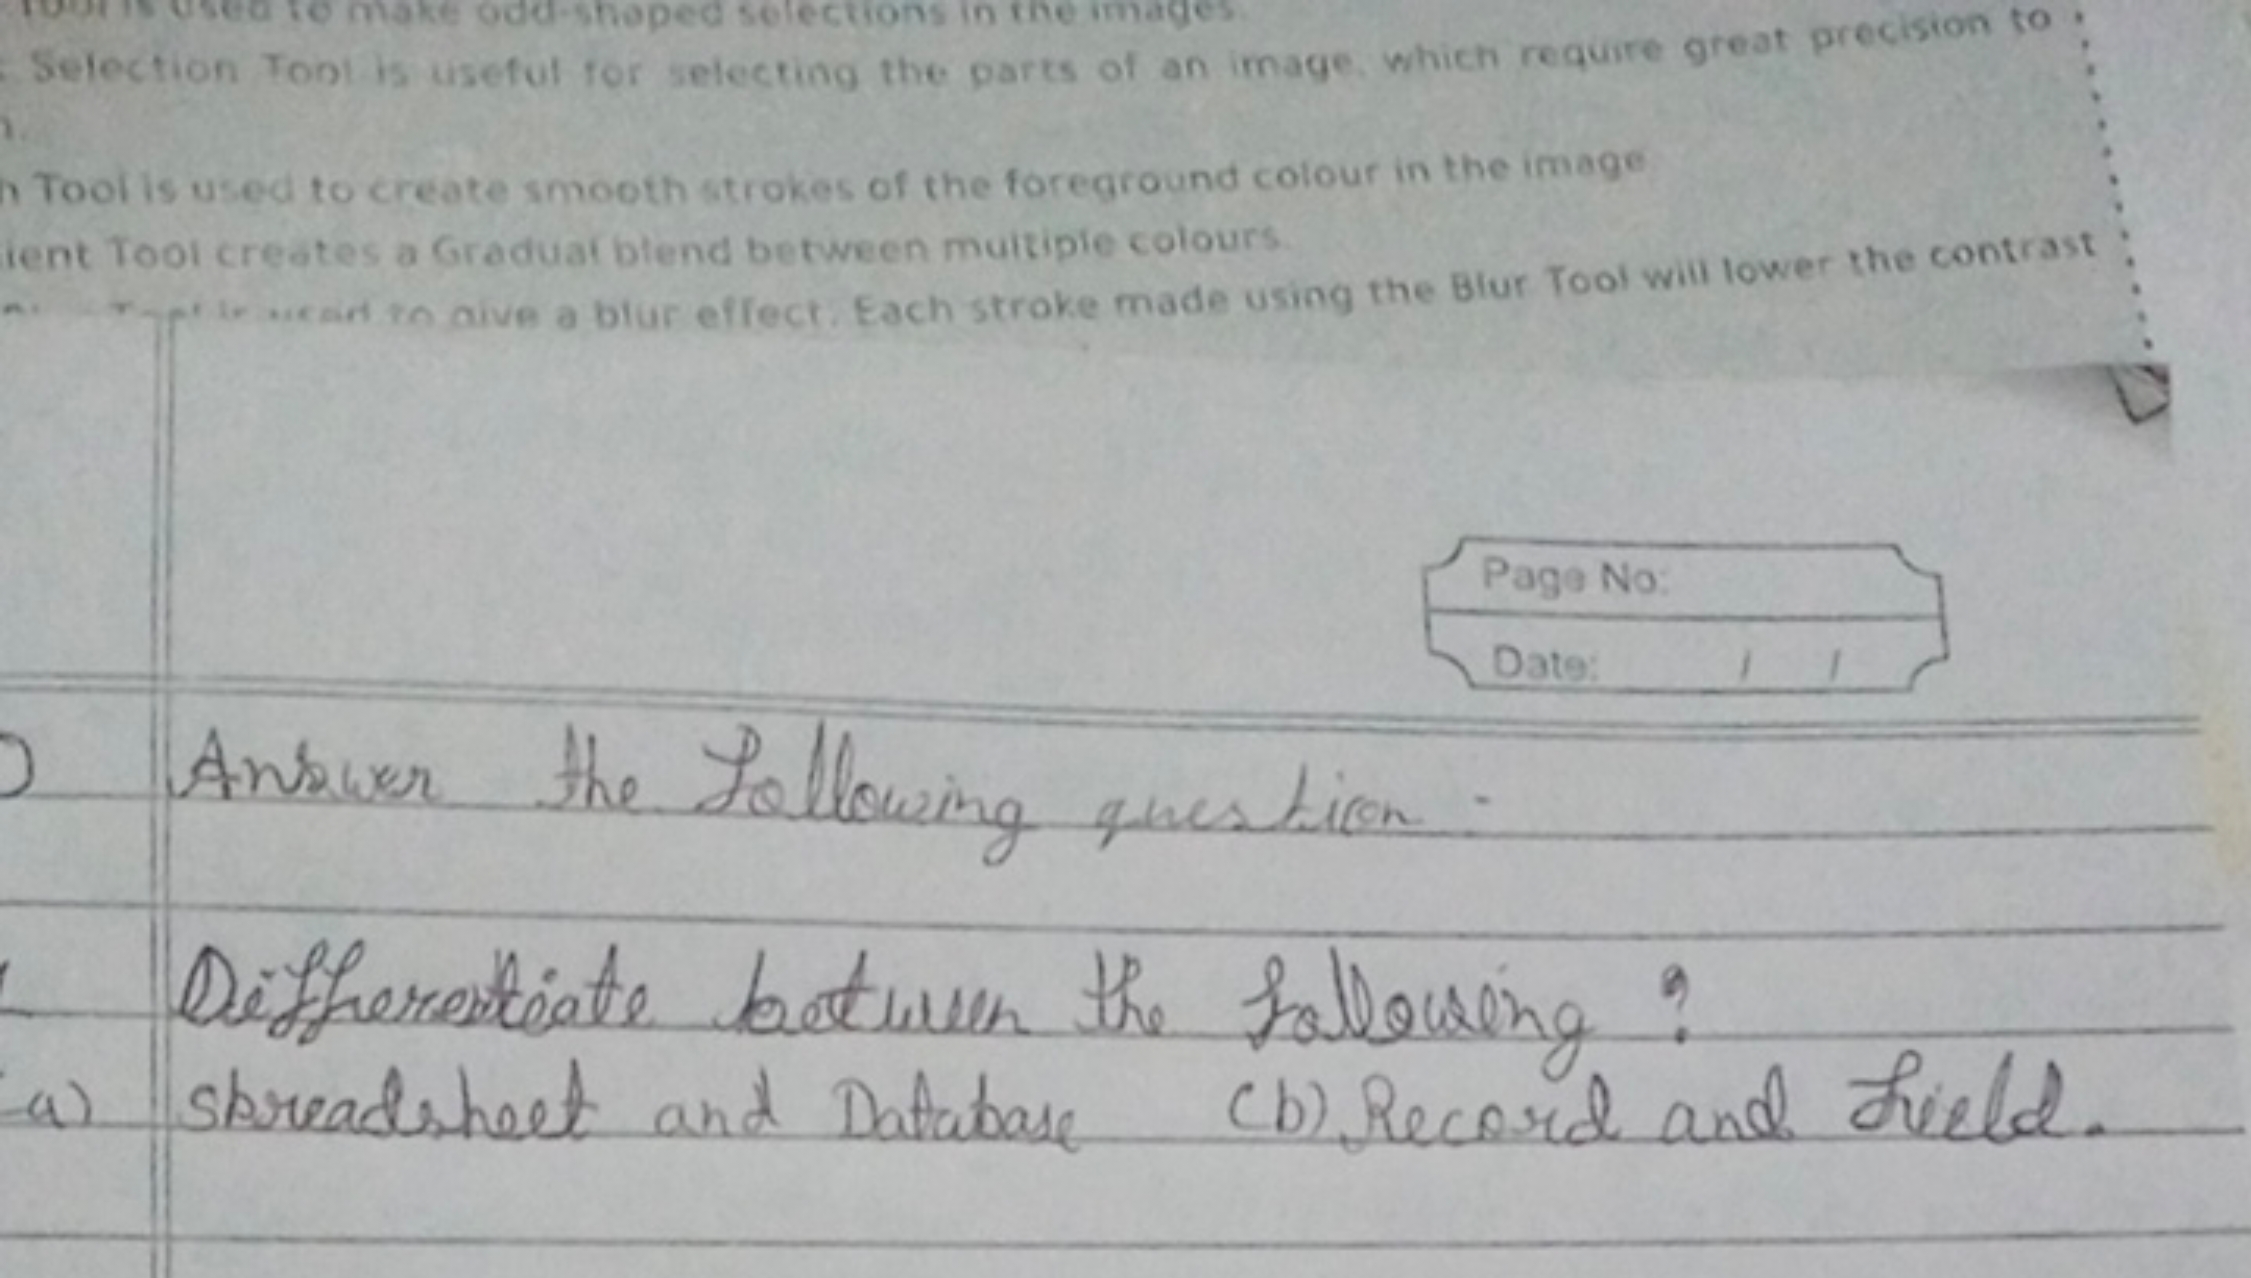 Tool is used to make odd-shaped selections in the images.
Selection Tool is useful for selecting the parts of an image, which require great precision to
Tool is used to create smooth strokes of the foreground colour in the image
ient Tool creates a Gradual blend between multiple colours.
Tool is used to give a blur effect. Each stroke made using the Blur Tool will lower the contrast
Page No:
Date: / /
Answer the following question -
Differentiate between the following ?
a) Spreadsheet and Database (b) Record and field.